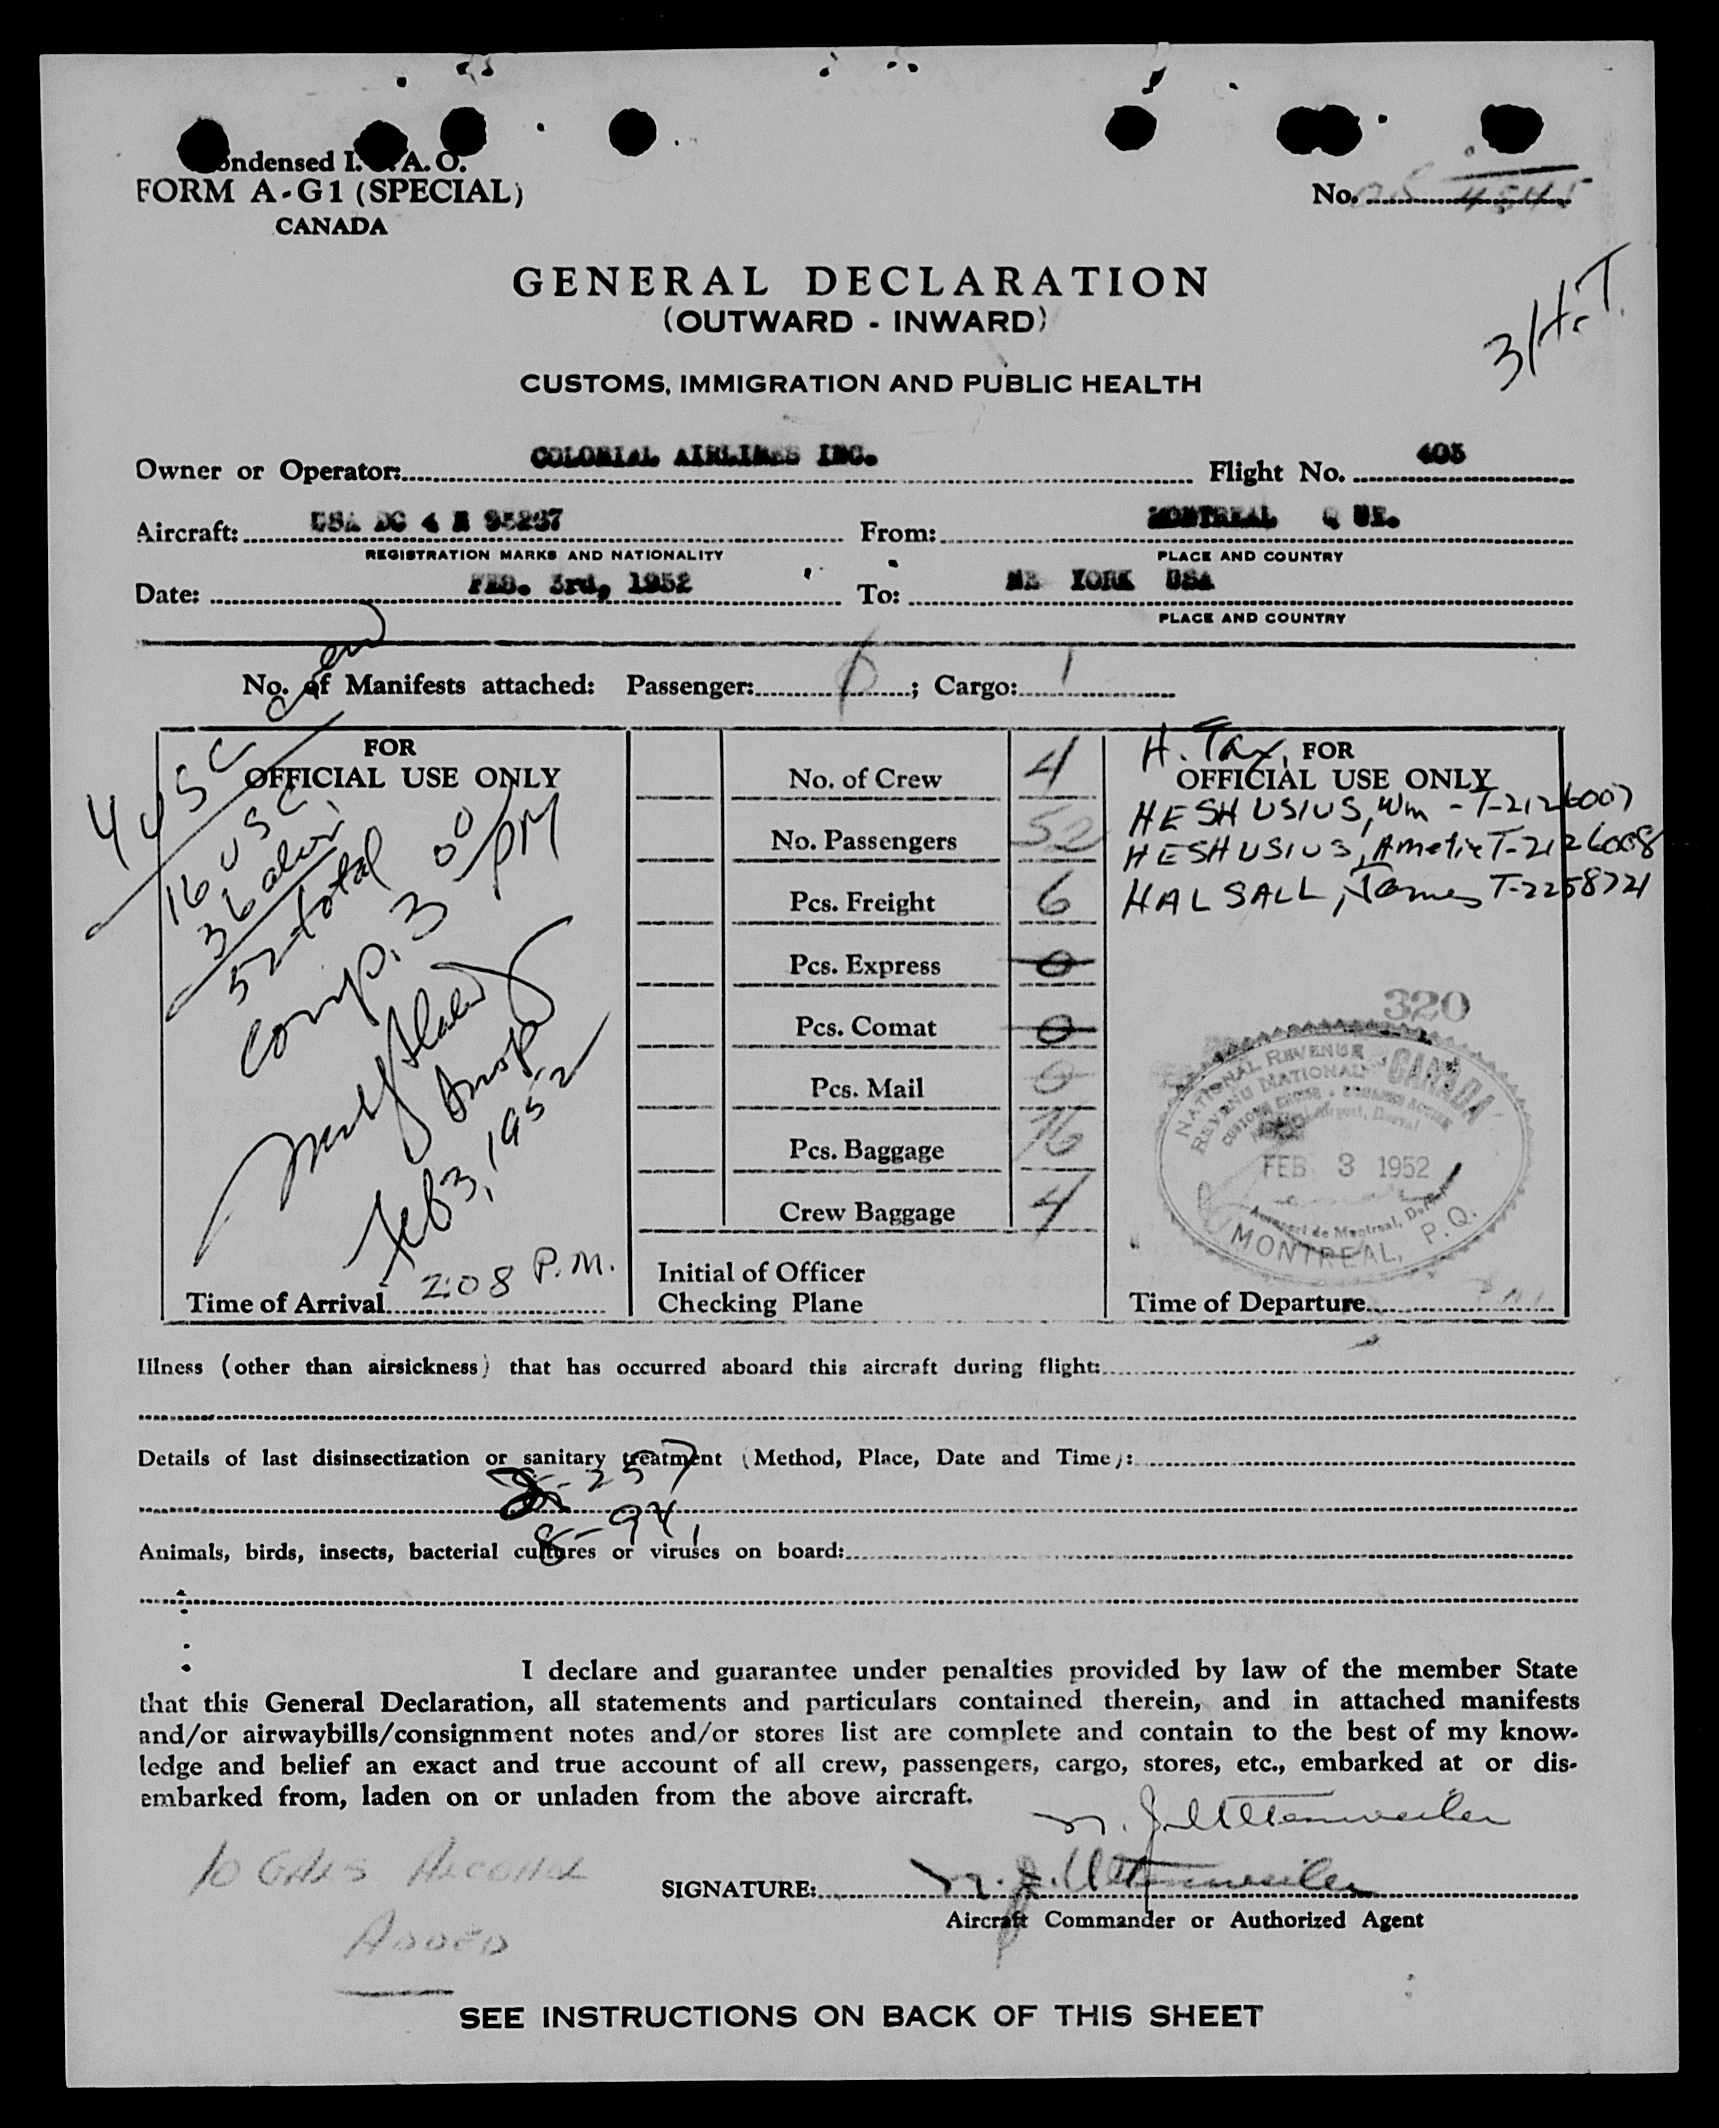 Condensed I.C.A.O.
FORM A-G1 (SPECIAL)
CANADA
No. 4545
GENERAL DECLARATION
(OUTWARD - INWARD)
3/H.T.
CUSTOMS, IMMIGRATION AND PUBLIC HEALTH
Owner or Operator: COLONIAL AIRLINES INC. Flight No. 403
Aircraft: USA DC 4 N 95267 From: MONTREAL Q UE.
REGISTRATION MARKS AND NATIONALITY PLACE AND COUNTRY
Date: FEB. 3rd, 1952 To: NE YORK USA
PLACE AND COUNTRY
No. of Manifests attached: Passenger: ; Cargo: 1
FOR
OFFICIAL USE ONLY
4 USC crew
16 USC
36 alien
52 total
Comp. 3 00 PM
Insp
Feb 3, 1952
Time of Arrival 2:08 P.M.
No. of Crew 4
No. Passengers 52
Pcs. Freight 6
Pcs. Express 0
Pcs. Comat 0
Pcs. Mail 0
Pcs. Baggage 76
Crew Baggage 4
Initial of Officer
Checking Plane
H. Tax, FOR
OFFICIAL USE ONLY
HESHUSIUS, Wm - T-2126007
HESHUSIUS, Ametie T-2126008
HALSALL, James T-2258721
320
NATIONAL REVENUE CANADA
REVENU NATIONAL
FEB 3 1952
Aeroport de Montreal, Dorval
MONTREAL, P.Q.
Time of Departure
Illness (other than airsickness) that has occurred aboard this aircraft during flight:
Details of last disinsectization or sanitary treatment (Method, Place, Date and Time):
8-257
8-94,
Animals, birds, insects, bacterial cultures or viruses on board:
I declare and guarantee under penalties provided by law of the member State
that this General Declaration, all statements and particulars contained therein, and in attached manifests
and/or airwaybills/consignment notes and/or stores list are complete and contain to the best of my know-
ledge and belief an exact and true account of all crew, passengers, cargo, stores, etc., embarked at or dis-
embarked from, laden on or unladen from the above aircraft.
N. J. Uttenweiler
10 GALS ALCOHOL
ADDED
SIGNATURE: N. J. Uttenweiler
Aircraft Commander or Authorized Agent
SEE INSTRUCTIONS ON BACK OF THIS SHEET